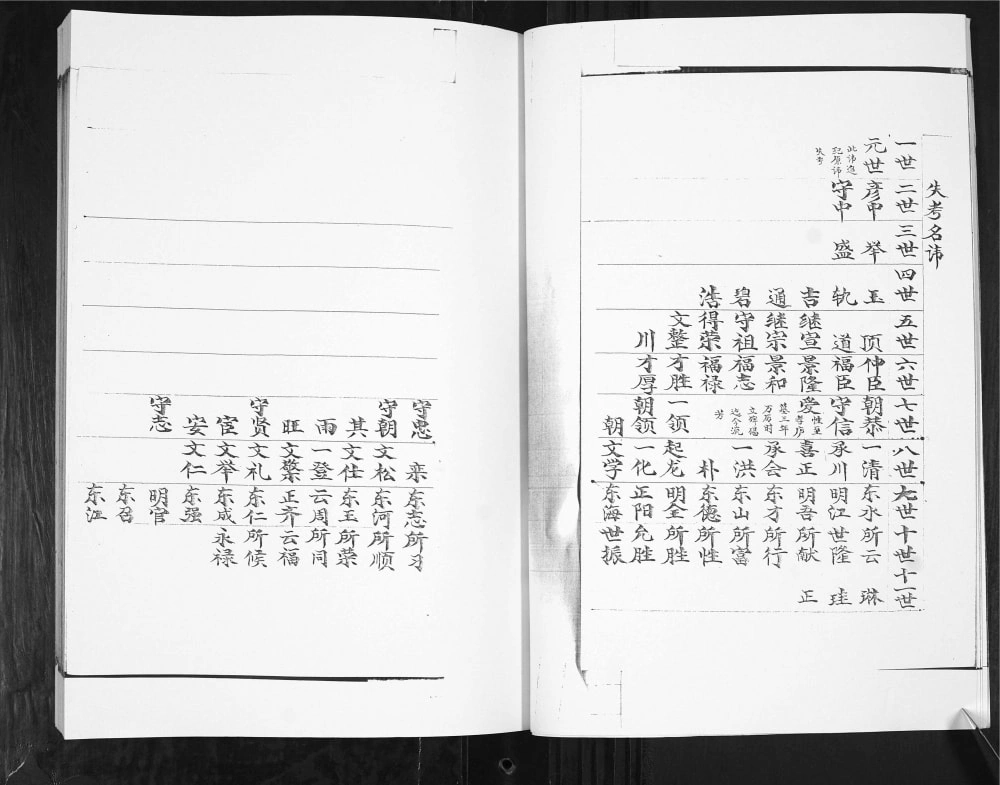 失考名讳
一世 二世 三世 四世 五世 六世 七世 八世 九世 十世 十一世
元世 彦申 举 玉 顶 仲臣 朝恭 一清 东水 所云 琳
此讳追
纪原讳
失考
守中 盛 轨 道 福臣 守信 承川 明江 世隆 珪
吉 继宣 景隆 爱 喜正 明吾 所献 正
性至
孝庐
墓三年
万历时
立碑偈
迄今流
芳
通 继宗 景和 承会 东才 所行
碧 守祖 福志 一洪 东山 所富
浩 得荣 福禄 朴 东德 所性
文整 才胜 一领 起龙 明全 所胜
川 才厚 朝领 一化 正阳 允胜
朝 文学 东海 世振
守忠 栾 东志 所习
守朝 文松 东河 所顺
其 文仕 东玉 所荣
雨 一登 云周 所同
旺 文檠 正齐 云福
守贤 文礼 东仁 所候
宦 文举 东成 永禄
安 文仁 东强
守志 明官
东召
东江